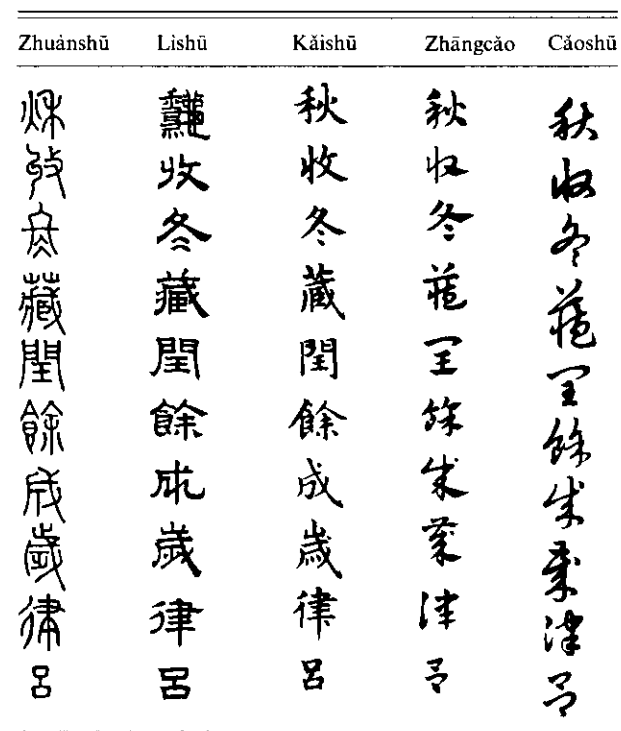 Zhuànshū Lishū Kǎishū Zhāngcǎo Cǎoshū
秌 龝 秋 秋 秋
收 收 收 收 收
冬 冬 冬 冬 冬
藏 藏 藏 藏 藏
閏 閏 閏 閏 閏
餘 餘 餘 餘 餘
成 成 成 成 成
歲 歲 歲 歲 歲
律 律 律 律 律
呂 呂 呂 呂 呂